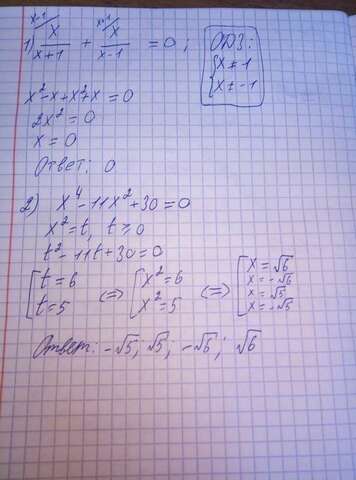 1) x-1/ x/(x+1) + x+1/ x/(x-1) = 0;
ОДЗ:
{x ≠ 1
{x ≠ -1
x²-x+x²+x=0
2x²=0
x=0
Ответ: 0
2) x⁴-11x²+30=0
x²=t, t≥0
t²-11t+30=0
[t=6 (=) [x²=6 (=) [x=√6
x=-√6
t=5 x²=5 x=√5
x=-√5
Ответ: -√5; √5; -√6; √6